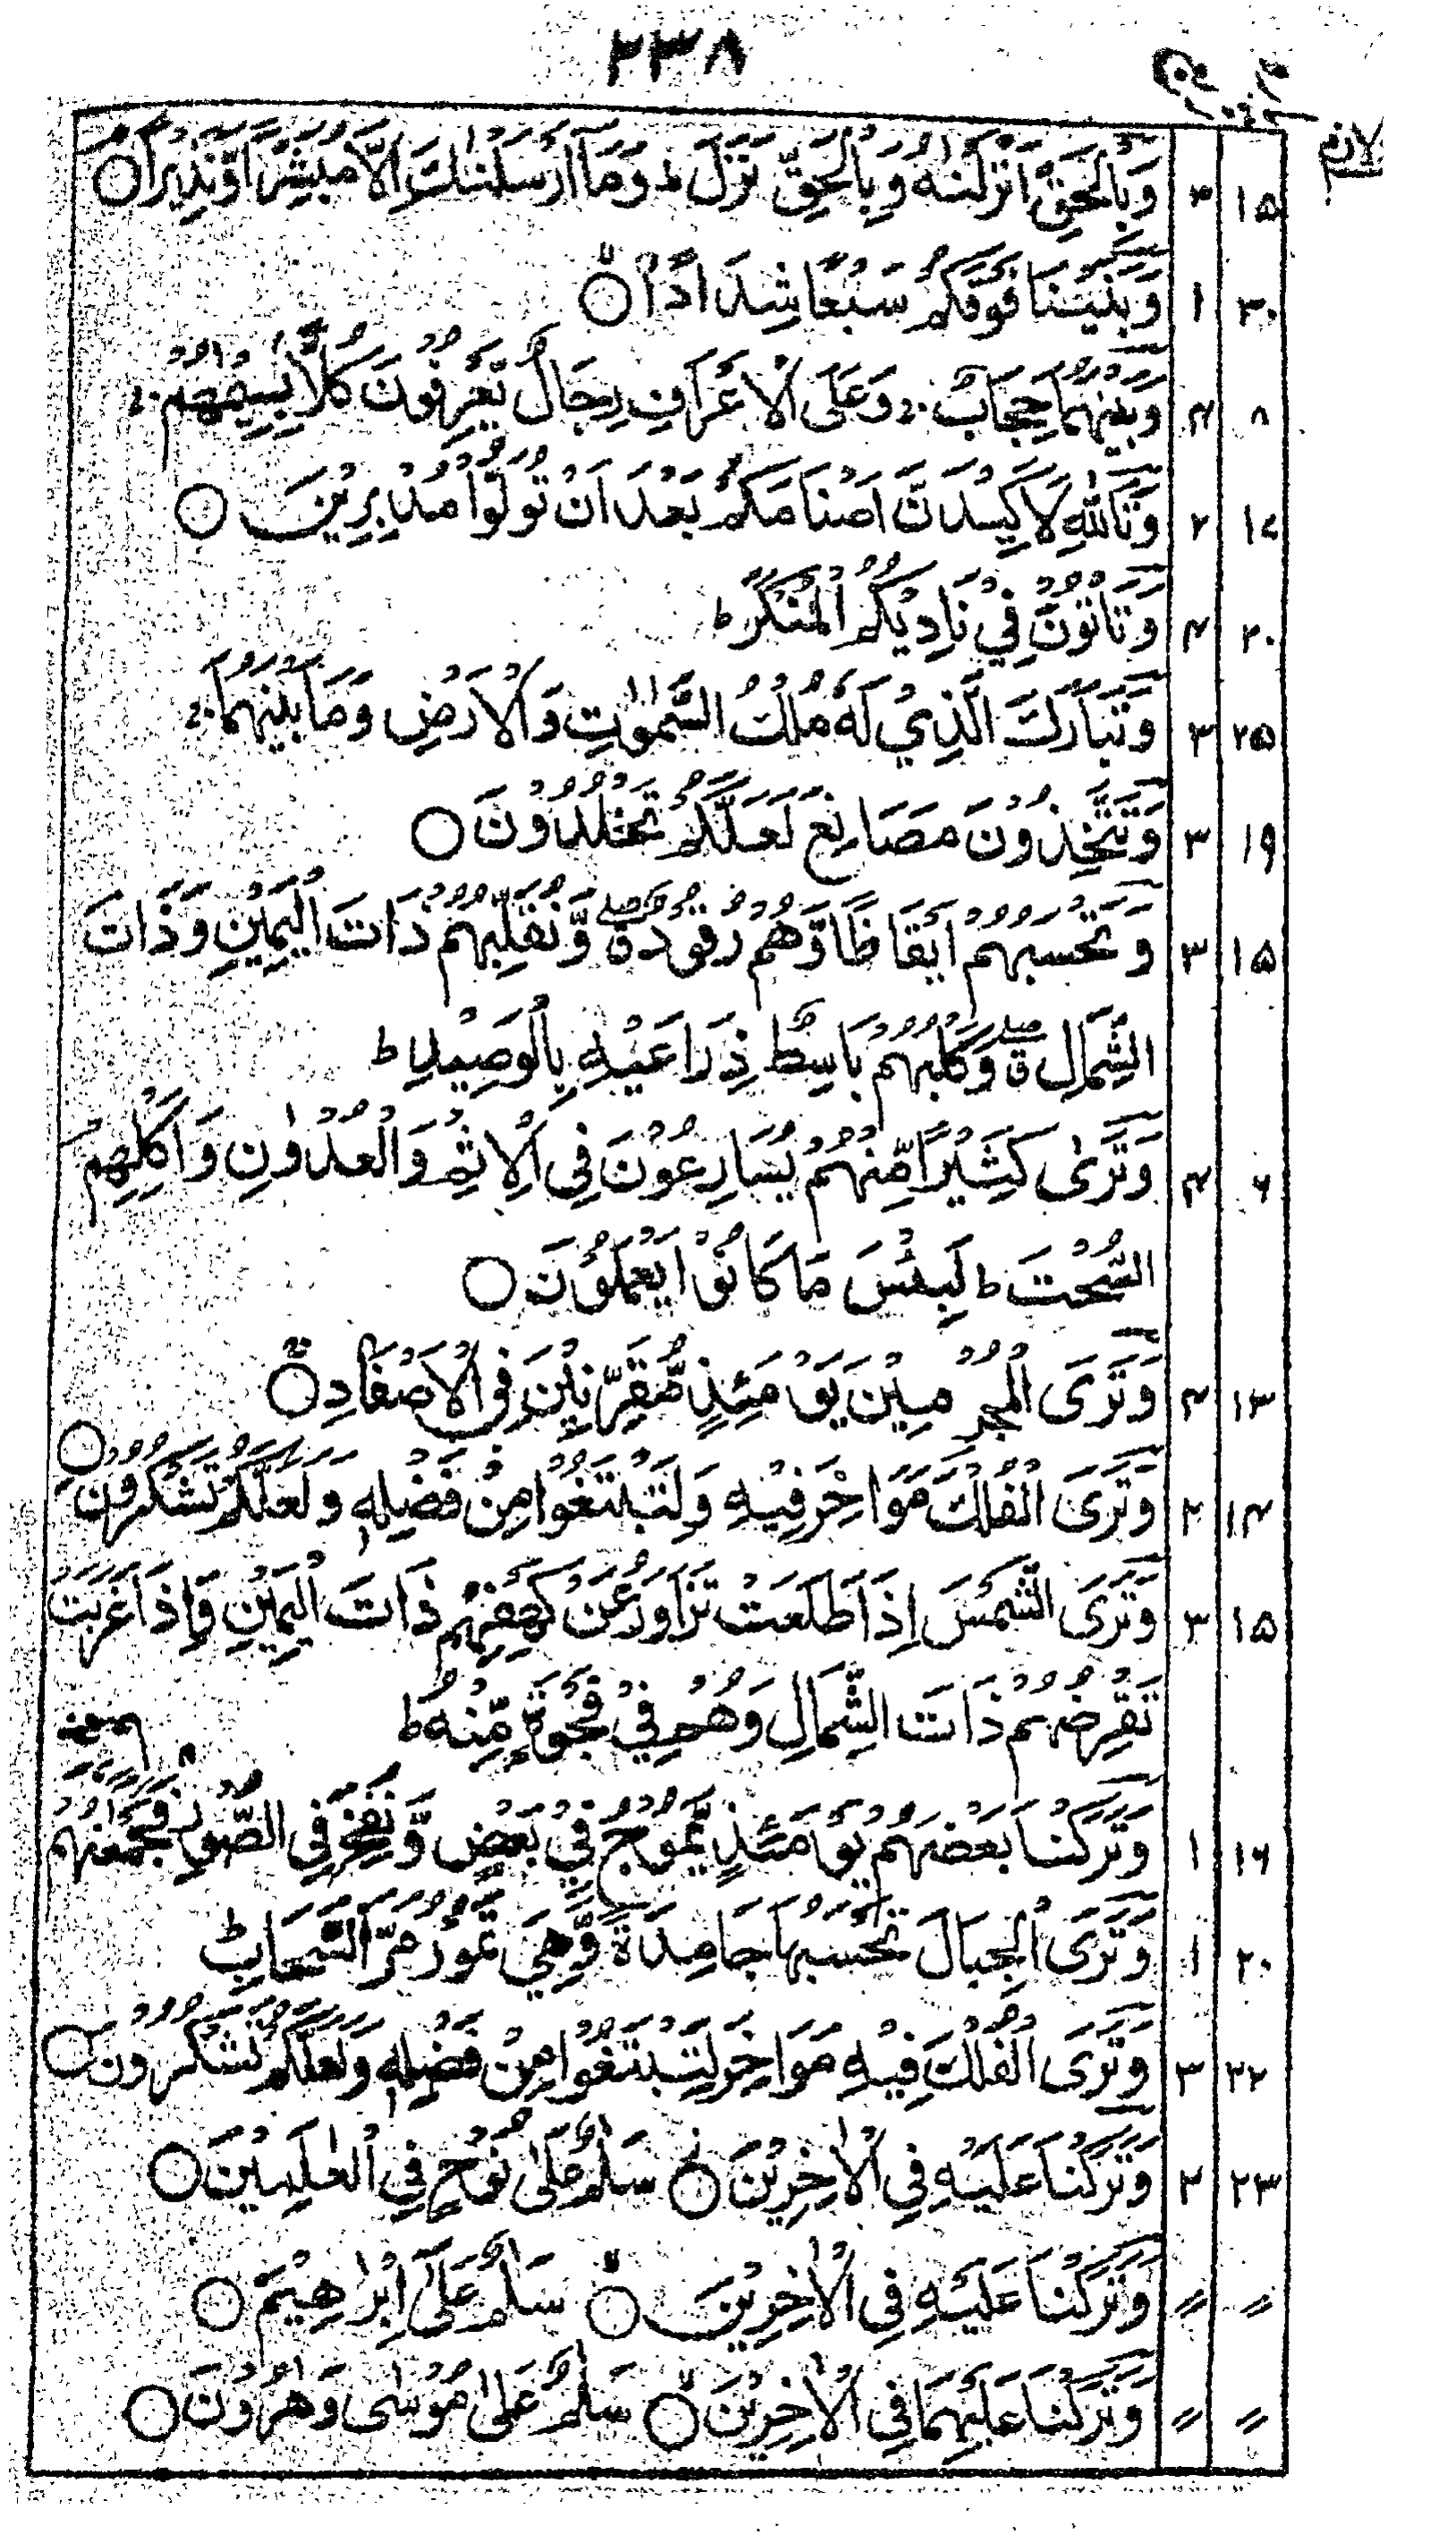 ۲۳۸
۱۵ ۳ وَبِالْحَقِّ اَنْزَلْنٰهُ وَبِالْحَقِّ نَزَلَ ط وَمَآ اَرْسَلْنٰكَ اِلَّا مُبَشِّرًا وَّنَذِيْرًا ○
۳۰ ۱ وَبَنَيْنَا فَوْقَكُمْ سَبْعًا شِدَادًا ○
۸ ۴ وَبَيْنَهُمَا حِجَابٌ ج وَعَلَى الْاَعْرَافِ رِجَالٌ يَّعْرِفُوْنَ كُلًّا بِسِيْمٰهُمْ ج
۱۷ ۲ وَتَاللّٰهِ لَاَكِيْدَنَّ اَصْنَامَكُمْ بَعْدَ اَنْ تُوَلُّوْا مُدْبِرِيْنَ ○
۲۰ ۴ وَتَاْتُوْنَ فِيْ نَادِيْكُمُ الْمُنْكَرَ ط
۲۵ ۳ وَتَبَارَكَ الَّذِيْ لَهٗ مُلْكُ السَّمٰوٰتِ وَالْاَرْضِ وَمَا بَيْنَهُمَا ج
۱۹ ۳ وَتَتَّخِذُوْنَ مَصَانِعَ لَعَلَّكُمْ تَخْلُدُوْنَ ○
۱۵ ۳ وَتَحْسَبُهُمْ اَيْقَاظًا وَّهُمْ رُقُوْدٌ ق صلے وَّنُقَلِّبُهُمْ ذَاتَ الْيَمِيْنِ وَذَاتَ
الشِّمَالِ ق صلے وَكَلْبُهُمْ بَاسِطٌ ذِرَاعَيْهِ بِالْوَصِيْدِ ط
۶ ۴ وَتَرٰى كَثِيْرًا مِّنْهُمْ يُسَارِعُوْنَ فِى الْاِثْمِ وَالْعُدْوَانِ وَاَكْلِهِمُ
السُّحْتَ ط لَبِئْسَ مَا كَانُوْا يَعْمَلُوْنَ ○
۱۳ ۴ وَتَرَى الْمُجْرِمِيْنَ يَوْمَئِذٍ مُّقَرَّنِيْنَ فِى الْاَصْفَادِ ○
۱۴ ۲ وَتَرَى الْفُلْكَ مَوَاخِرَ فِيْهِ وَلِتَبْتَغُوْا مِنْ فَضْلِهٖ وَلَعَلَّكُمْ تَشْكُرُوْنَ ○
۱۵ ۳ وَتَرَى الشَّمْسَ اِذَا طَلَعَتْ تَزٰوَرُ عَنْ كَهْفِهِمْ ذَاتَ الْيَمِيْنِ وَاِذَا غَرَبَتْ
تَقْرِضُهُمْ ذَاتَ الشِّمَالِ وَهُمْ فِيْ فَجْوَةٍ مِّنْهُ ط
۱۶ ۱ وَتَرَكْنَا بَعْضَهُمْ يَوْمَئِذٍ يَّمُوْجُ فِيْ بَعْضٍ وَّنُفِخَ فِى الصُّوْرِ فَجَمَعْنٰهُمْ
۲۰ ۱ وَتَرَى الْجِبَالَ تَحْسَبُهَا جَامِدَةً وَّهِيَ تَمُرُّ مَرَّ السَّحَابِ ط
۲۲ ۳ وَتَرَى الْفُلْكَ فِيْهِ مَوَاخِرَ لِتَبْتَغُوْا مِنْ فَضْلِهٖ وَلَعَلَّكُمْ تَشْكُرُوْنَ ○
۲۳ ۲ وَتَرَكْنَا عَلَيْهِ فِى الْاٰخِرِيْنَ ○ سَلٰمٌ عَلٰى نُوْحٍ فِى الْعٰلَمِيْنَ ○
〃 〃 وَتَرَكْنَا عَلَيْهِ فِى الْاٰخِرِيْنَ ○ سَلٰمٌ عَلٰٓى اِبْرٰهِيْمَ ○
〃 〃 وَتَرَكْنَا عَلَيْهِمَا فِى الْاٰخِرِيْنَ ○ سَلٰمٌ عَلٰى مُوْسٰى وَهٰرُوْنَ ○